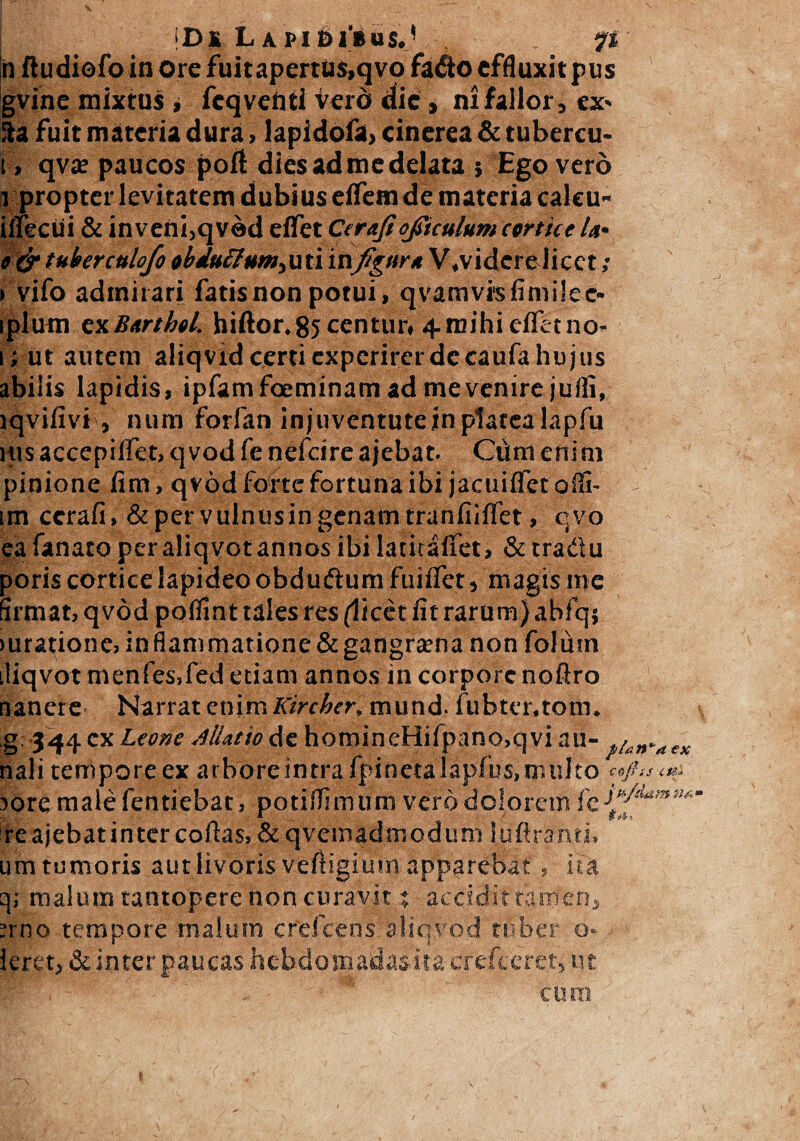 DE LAPIDIBUS. 71
n ſtudioſo in ore fuit apertus, qvo facto effluxit pus
gvine mixtus, ſeqventi verò die, ni fallor, ex-
ſta fuit materia dura, lapidoſa, cinerea & tubercu-
i, qvæ paucos poſt dies ad me delata; Ego verò
propter levitatem dubius eſſem de materia calcu-
iſſecui & inveni, qvòd eſſet Ceraſi oſſiculum cortice la-
o & tuberculoſo obductum, uti in figura V. videre licet;
viſo admirari ſatis non potui, qvamvis ſimile e-
plum ex Barthol. hiſtor. 85 centur. 4. mihi eſſet no-
; ut autem aliqvid certi experirer de cauſa hujus
abilis lapidis, ipſam fœminam ad me venire juſſi,
qviſivi, num forſan in juventute in platea lapſu
us accepiſſet, qvod ſe neſcire ajebat. Cùm enim
pinione ſim, qvòd forte fortuna ibi jacuiſſet oſſi-
m ceraſi, & per vulnus in genam tranſiiſſet, qvo
ea ſanato per aliqvot annos ibi latitáſſet, & tractu
poris cortice lapideo obductum fuiſſet, magis me
firmat, qvòd poſſint tales res (licèt ſit rarum) abſq;
uratione, inflammatione & gangræna non ſolùm
liqvot menſes, ſed etiam annos in corpore noſtro
nanere Narrat enim Kircher. mund. ſubter. tom.
g. 344 ex Leone Allatio de homine Hiſpano, qvi au-
nali tempore ex arbore intra ſpineta lapſus, multo
ore malè ſentiebat, potiſſimum verò dolorem ſe
re ajebat inter coſtas, & qvemadmodum luſtranti,
um tumoris aut livoris veſtigium apparebat, ita
q; malum tantopere non curavit; accidit tamen,
erno tempore malum creſcens aliqvod tuber o-
leret, & inter paucas hebdomadas ita creſceret, ut
cum